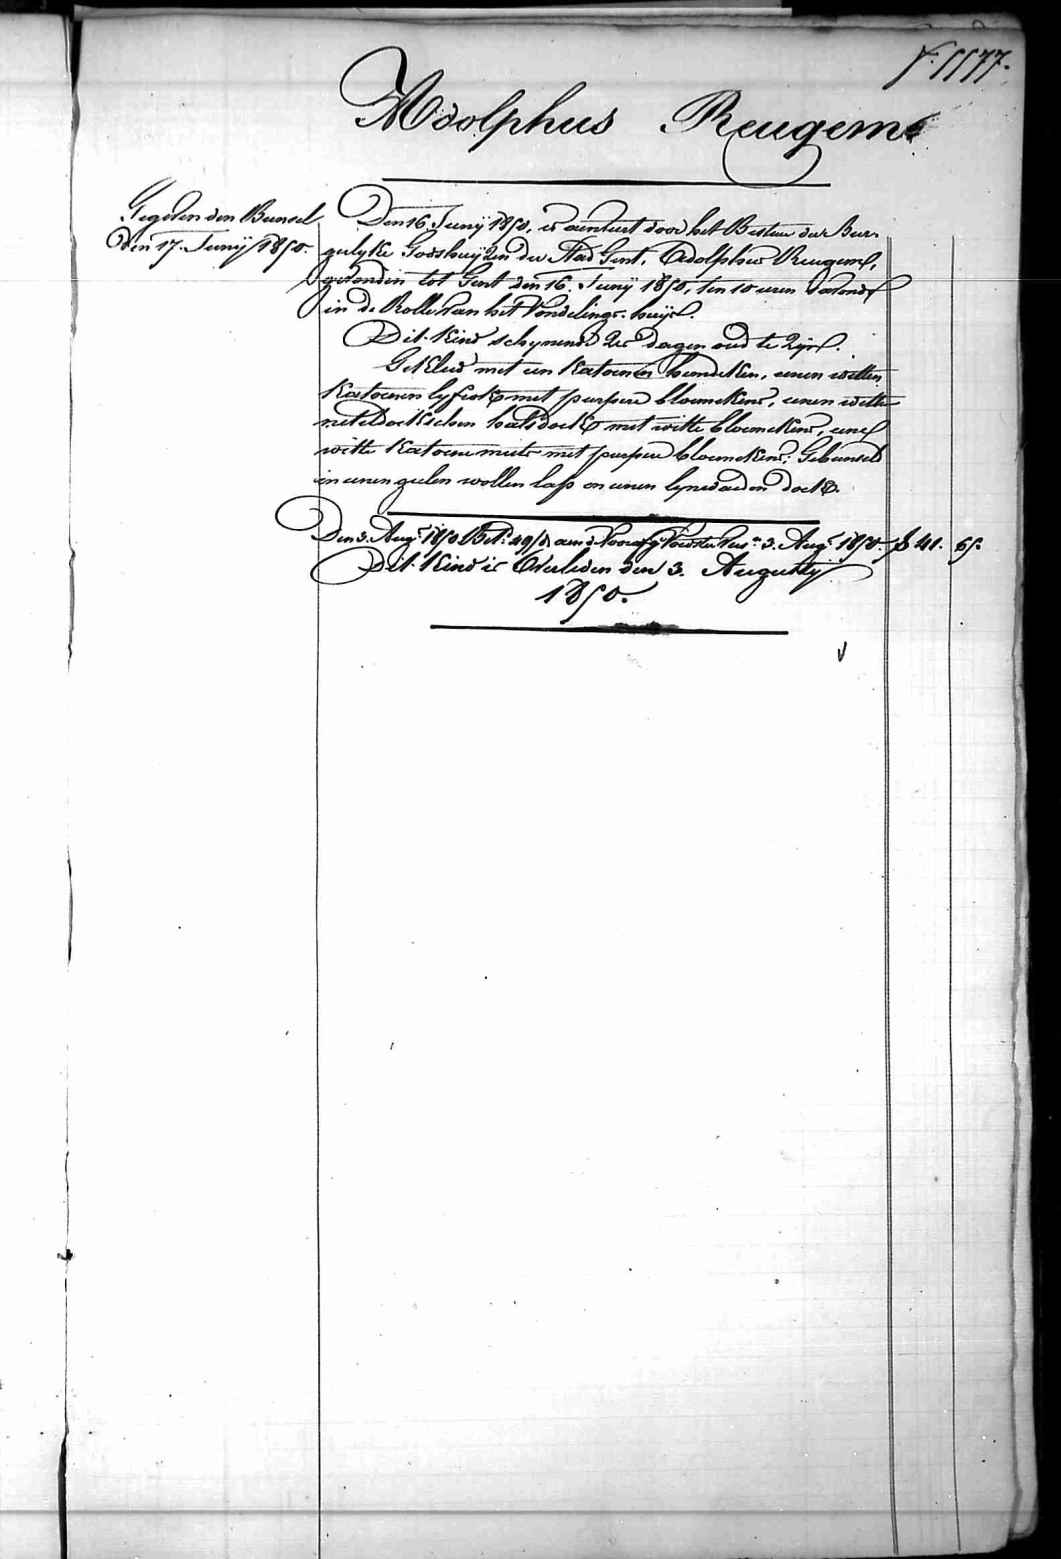 F. 1177.
Adolphus Reugems
Gegeven den Bunsel
den 17. Junij 1850.
Den 16. Junij 1850, is aenveert door het Bestier der Bur-
gelyke Godshuijzen der Stad Gent, Adolphus Reugems,
gevonden tot Gent den 16. Junij 1850, ten 10 uren s'avonds
in de Rolle van het Vondelings-huijs.
Dit Kind schynende 2 dagen oud te zijn.
Gekleed met een katoenen hemdeken, eenen witten
katoenen lyfrok met purpere bloemekens, eenen witte
neteldoekschen halsdoek met witte bloemekens, eene
witte katoene muts met purpere bloemekens; Gebunseld
in eenen geelen wollen lap en eenen lynwaeden doek.
Den 3. Augt. 1850 Bet. 49/d aen d' Voedster tot 3. Augt. 1850. 41. 65.
Dit Kind is Overleden den 3. Augusty
1850.